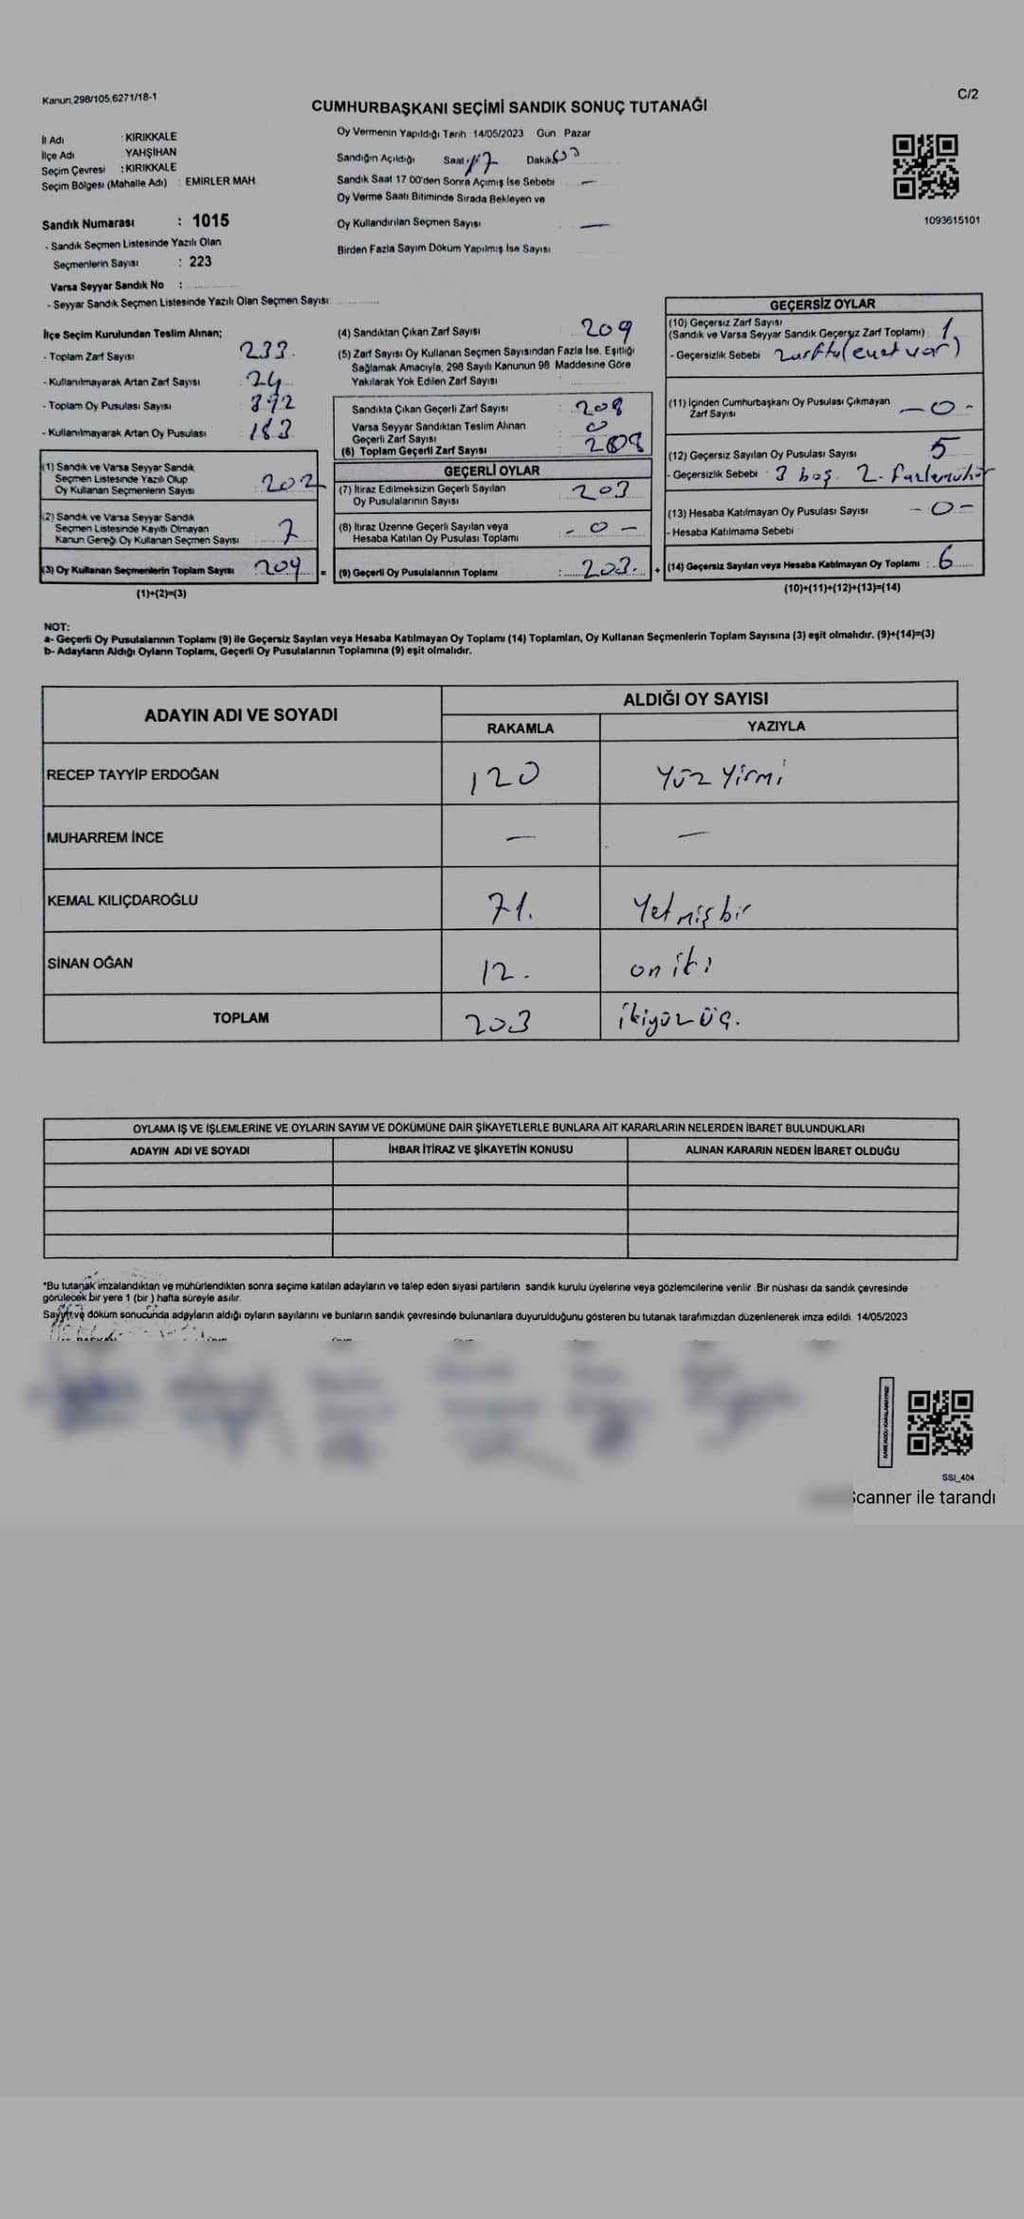 Kanun,298/105,6271/18-1
C/2
CUMHURBAŞKANI SEÇİMİ SANDIK SONUÇ TUTANAĞI
İl Adı : KIRIKKALE
İlçe Adı YAHŞİHAN
Seçim Çevresi : KIRIKKALE
Seçim Bölgesi (Mahalle Adı) : EMIRLER MAH
Sandık Numarası : 1015
- Sandık Seçmen Listesinde Yazılı Olan
Seçmenlerin Sayısı : 223
Varsa Seyyar Sandık No :
- Seyyar Sandık Seçmen Listesinde Yazılı Olan Seçmen Sayısı
Oy Vermenin Yapıldığı Tarih 14/05/2023 Gün Pazar
Sandığın Açıldığı Saat 17 Dakika
Sandık Saat 17 00'den Sonra Açımış İse Sebebi —
Oy Verme Saati Bitiminde Sırada Bekleyen ve
Oy Kullandırılan Seçmen Sayısı —
Birden Fazla Sayım Döküm Yapılmış İse Sayısı
1093615101
İlçe Seçim Kurulundan Teslim Alınan;
- Toplam Zarf Sayısı 233.
- Kullanılmayarak Artan Zarf Sayısı 24
- Toplam Oy Pusulası Sayısı 392
- Kullanılmayarak Artan Oy Pusulası 183
(1) Sandık ve Varsa Seyyar Sandık
Seçmen Listesinde Yazılı Olup
Oy Kullanan Seçmenlerin Sayısı 202
(2) Sandık ve Varsa Seyyar Sandık
Seçmen Listesinde Kayıtlı Olmayan
Kanun Gereği Oy Kullanan Seçmen Sayısı 7
(3) Oy Kullanan Seçmenlerin Toplam Sayısı 209 =
(1)+(2)=(3)
(4) Sandıktan Çıkan Zarf Sayısı 209
(5) Zarf Sayısı Oy Kullanan Seçmen Sayısından Fazla İse, Eşitliği
Sağlamak Amacıyla, 298 Sayılı Kanunun 98 Maddesine Göre
Yakılarak Yok Edilen Zarf Sayısı
Sandıkta Çıkan Geçerli Zarf Sayısı : 208
Varsa Seyyar Sandıktan Teslim Alınan
Geçerli Zarf Sayısı 0
(6) Toplam Geçerli Zarf Sayısı 208
GEÇERLİ OYLAR
(7) İtiraz Edilmeksizin Geçerli Sayılan
Oy Pusulalarının Sayısı 203
(8) İtiraz Üzerine Geçerli Sayılan veya
Hesaba Katılan Oy Pusulası Toplamı - 0 -
(9) Geçerli Oy Pusulalarının Toplamı : 203. +
GEÇERSİZ OYLAR
(10) Geçersiz Zarf Sayısı
(Sandık ve Varsa Seyyar Sandık Geçersiz Zarf Toplamı) 1
- Geçersizlik Sebebi
(11) İçinden Cumhurbaşkanı Oy Pusulası Çıkmayan
Zarf Sayısı - 0 -
(12) Geçersiz Sayılan Oy Pusulası Sayısı 5
- Geçersizlik Sebebi 3 boş 2. fazla mühür
(13) Hesaba Katılmayan Oy Pusulası Sayısı - 0 -
- Hesaba Katılmama Sebebi
(14) Geçersiz Sayılan veya Hesaba Katılmayan Oy Toplamı : 6
(10)+(11)+(12)+(13)=(14)
NOT:
a- Geçerli Oy Pusulalarının Toplamı (9) ile Geçersiz Sayılan veya Hesaba Katılmayan Oy Toplamı (14) Toplamları, Oy Kullanan Seçmenlerin Toplam Sayısına (3) eşit olmalıdır. (9)+(14)=(3)
b- Adayların Aldığı Oyların Toplamı, Geçerli Oy Pusulalarının Toplamına (9) eşit olmalıdır.
ADAYIN ADI VE SOYADI
ALDIĞI OY SAYISI
RAKAMLA YAZIYLA
RECEP TAYYİP ERDOĞAN 120 Yüz Yirmi
MUHARREM İNCE — —
KEMAL KILIÇDAROĞLU 71. Yetmişbir
SİNAN OĞAN 12. on iki
TOPLAM 203 ikiyüz üç.
OYLAMA İŞ VE İŞLEMLERİNE VE OYLARIN SAYIM VE DÖKÜMÜNE DAİR ŞİKAYETLERLE BUNLARA AİT KARARLARIN NELERDEN İBARET BULUNDUKLARI
ADAYIN ADI VE SOYADI İHBAR İTİRAZ VE ŞİKAYETİN KONUSU ALINAN KARARIN NEDEN İBARET OLDUĞU
*Bu tutanak imzalandıktan ve mühürlendikten sonra seçime katılan adayların ve talep eden siyasi partilerin sandık kurulu üyelerine veya gözlemcilerine verilir. Bir nüshası da sandık çevresinde
görülecek bir yere 1 (bir ) hafta süreyle asılır.
Sayım ve döküm sonucunda adayların aldığı oyların sayılarını ve bunların sandık çevresinde bulunanlara duyurulduğunu gösteren bu tutanak tarafımızdan düzenlenerek imza edildi. 14/05/2023
SSI_404
Scanner ile tarandı